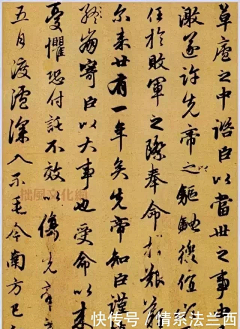 草廬之中諮臣以當世之事
激遂許先帝之驅馳後值
任於敗軍之際奉命於艱
尒来廿有一年矣先帝知臣謹
臨崩寄臣以大事也受命以来
憂懼恐付託不效以傷先帝
五月渡瀘深入不毛今南方已
拙風文化網
快传号/情系法兰西